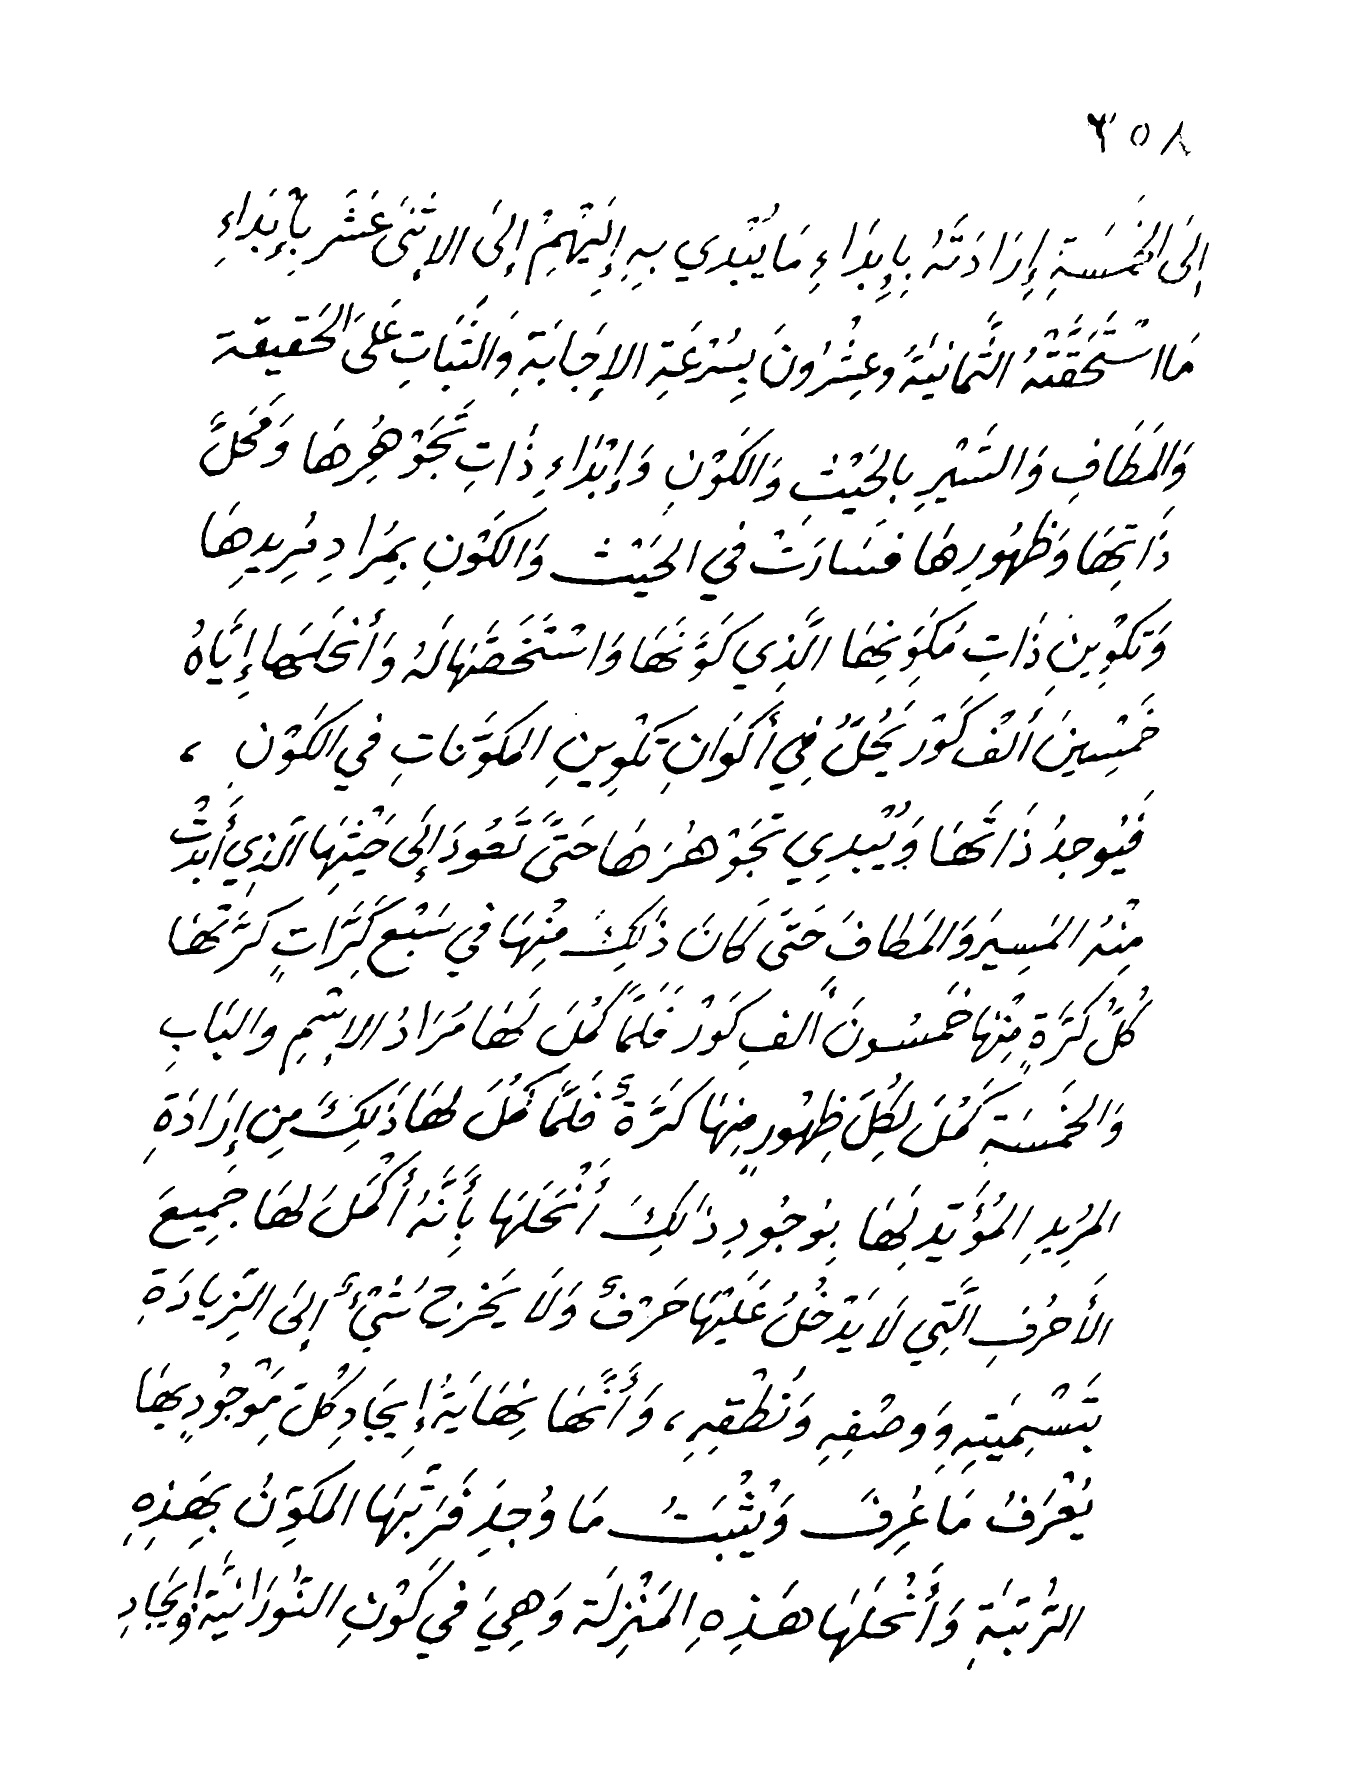 ٣٥٨
إِلَى الخَمْسَةِ إِرَادَتَهُ بِإِبِدَاءِ مَا يُبْدِي بِهِ إِلَيْهِمْ إِلَى الاِثْنَى عَشَر بِإِبَداءِ
مَا اسْتَحَقَّتْهُ الثَّمانِيَةُ وعِشْرُونَ بِسُرْعَةِ الاِجَابَةِ وَالثَّبَاتِ عَلَى الحَقِيقَة
وَالمَطَافِ وَالسَّيْرِ بِالحَيْثِ وَالكَوْنِ وَإِبْدَاءِ ذَاتِ تَجَوْهُرِهَا وَمَحَلِّ
ذَاتِهَا وَظُهُورِهَا فَسَارَتْ في الحَيْث وَالكَوْنِ بِمُرَادِ مُرِيدِهَا
وَتَكوِينِ ذَاتِ مُكَوِّنِهَا الَّذِي كَوَّنَهَا وَاسْتَخَصَّهَا لَهُ وَأَنْحَلَهَا إِيَّاهُ
خَمْسِينَ أَلْفَ كَوْر يَحُلُّ فِي أَكْوَانِ تَكْوِينِ المكَوَّنَاتِ في الكَوْنِ ،
فَيُوجِدُ ذَاتَهَا وَيُبْدِي تَجَوْهُرَهَا حَتَّى تَعُودَ إِلَى حَيْثِهَا الَّذِي أَبْدَتْ
مِنْهُ المَسِيرَ وَالمَطَافَ حَتَّى كَانَ ذَلِكَ مِنْهَا في سَبْعِ كَرَّاتٍ كَرَّتْهَا
كُلُّ كَرَّةٍ مِنْهَا خَمْسُونَ أَلفِ كَوْرٍ فَلَمَّا كَمُلَ لَهَا مُرَادُ الاِسْمِ والبَابِ
وَالخَمسَةِ كَمُلَ لِكُلِّ ظُهُورٍ مِنهَا كَرَّةٌ فَلَمَّا كَمُلَ لهَا ذَلِكَ مِن إِرَادَةِ
المرِيدِ المُؤَيِّدِ لَهَا بِوُجُودِ ذَلِكَ أَنْحَلَهَا بِأَنَّهُ أَكْمَلَ لهَا جَمِيعَ
الأَحرُفِ الَّتِي لاَ يَدْخُلُ عَلَيْهَا حَرْفٌ وَلَا يَخْرُج شَيْءٌ إِلَى الزِّيادَةِ
بِتَسْمِيَتِهِ وَوصْفِهِ وَنُطْقِهِ ، وَأَنَّهَا نِهَايَةُ إِيجَادِ كُلِّ مَوْجُودٍ بِهَا
يُعْرَفُ مَا عُرِفَ وَيُثْبَتُ مَا وُجِدَ فَرَتَّبَهَا المكَوِّنُ بِهَذِهِ
الرُّتبَةِ وَأَنْحَلَهَا هَذِهِ المَنْزِلَة وَهِيَ في كَوْنِ النّورَانِيَّةِ وإِيجَادِ